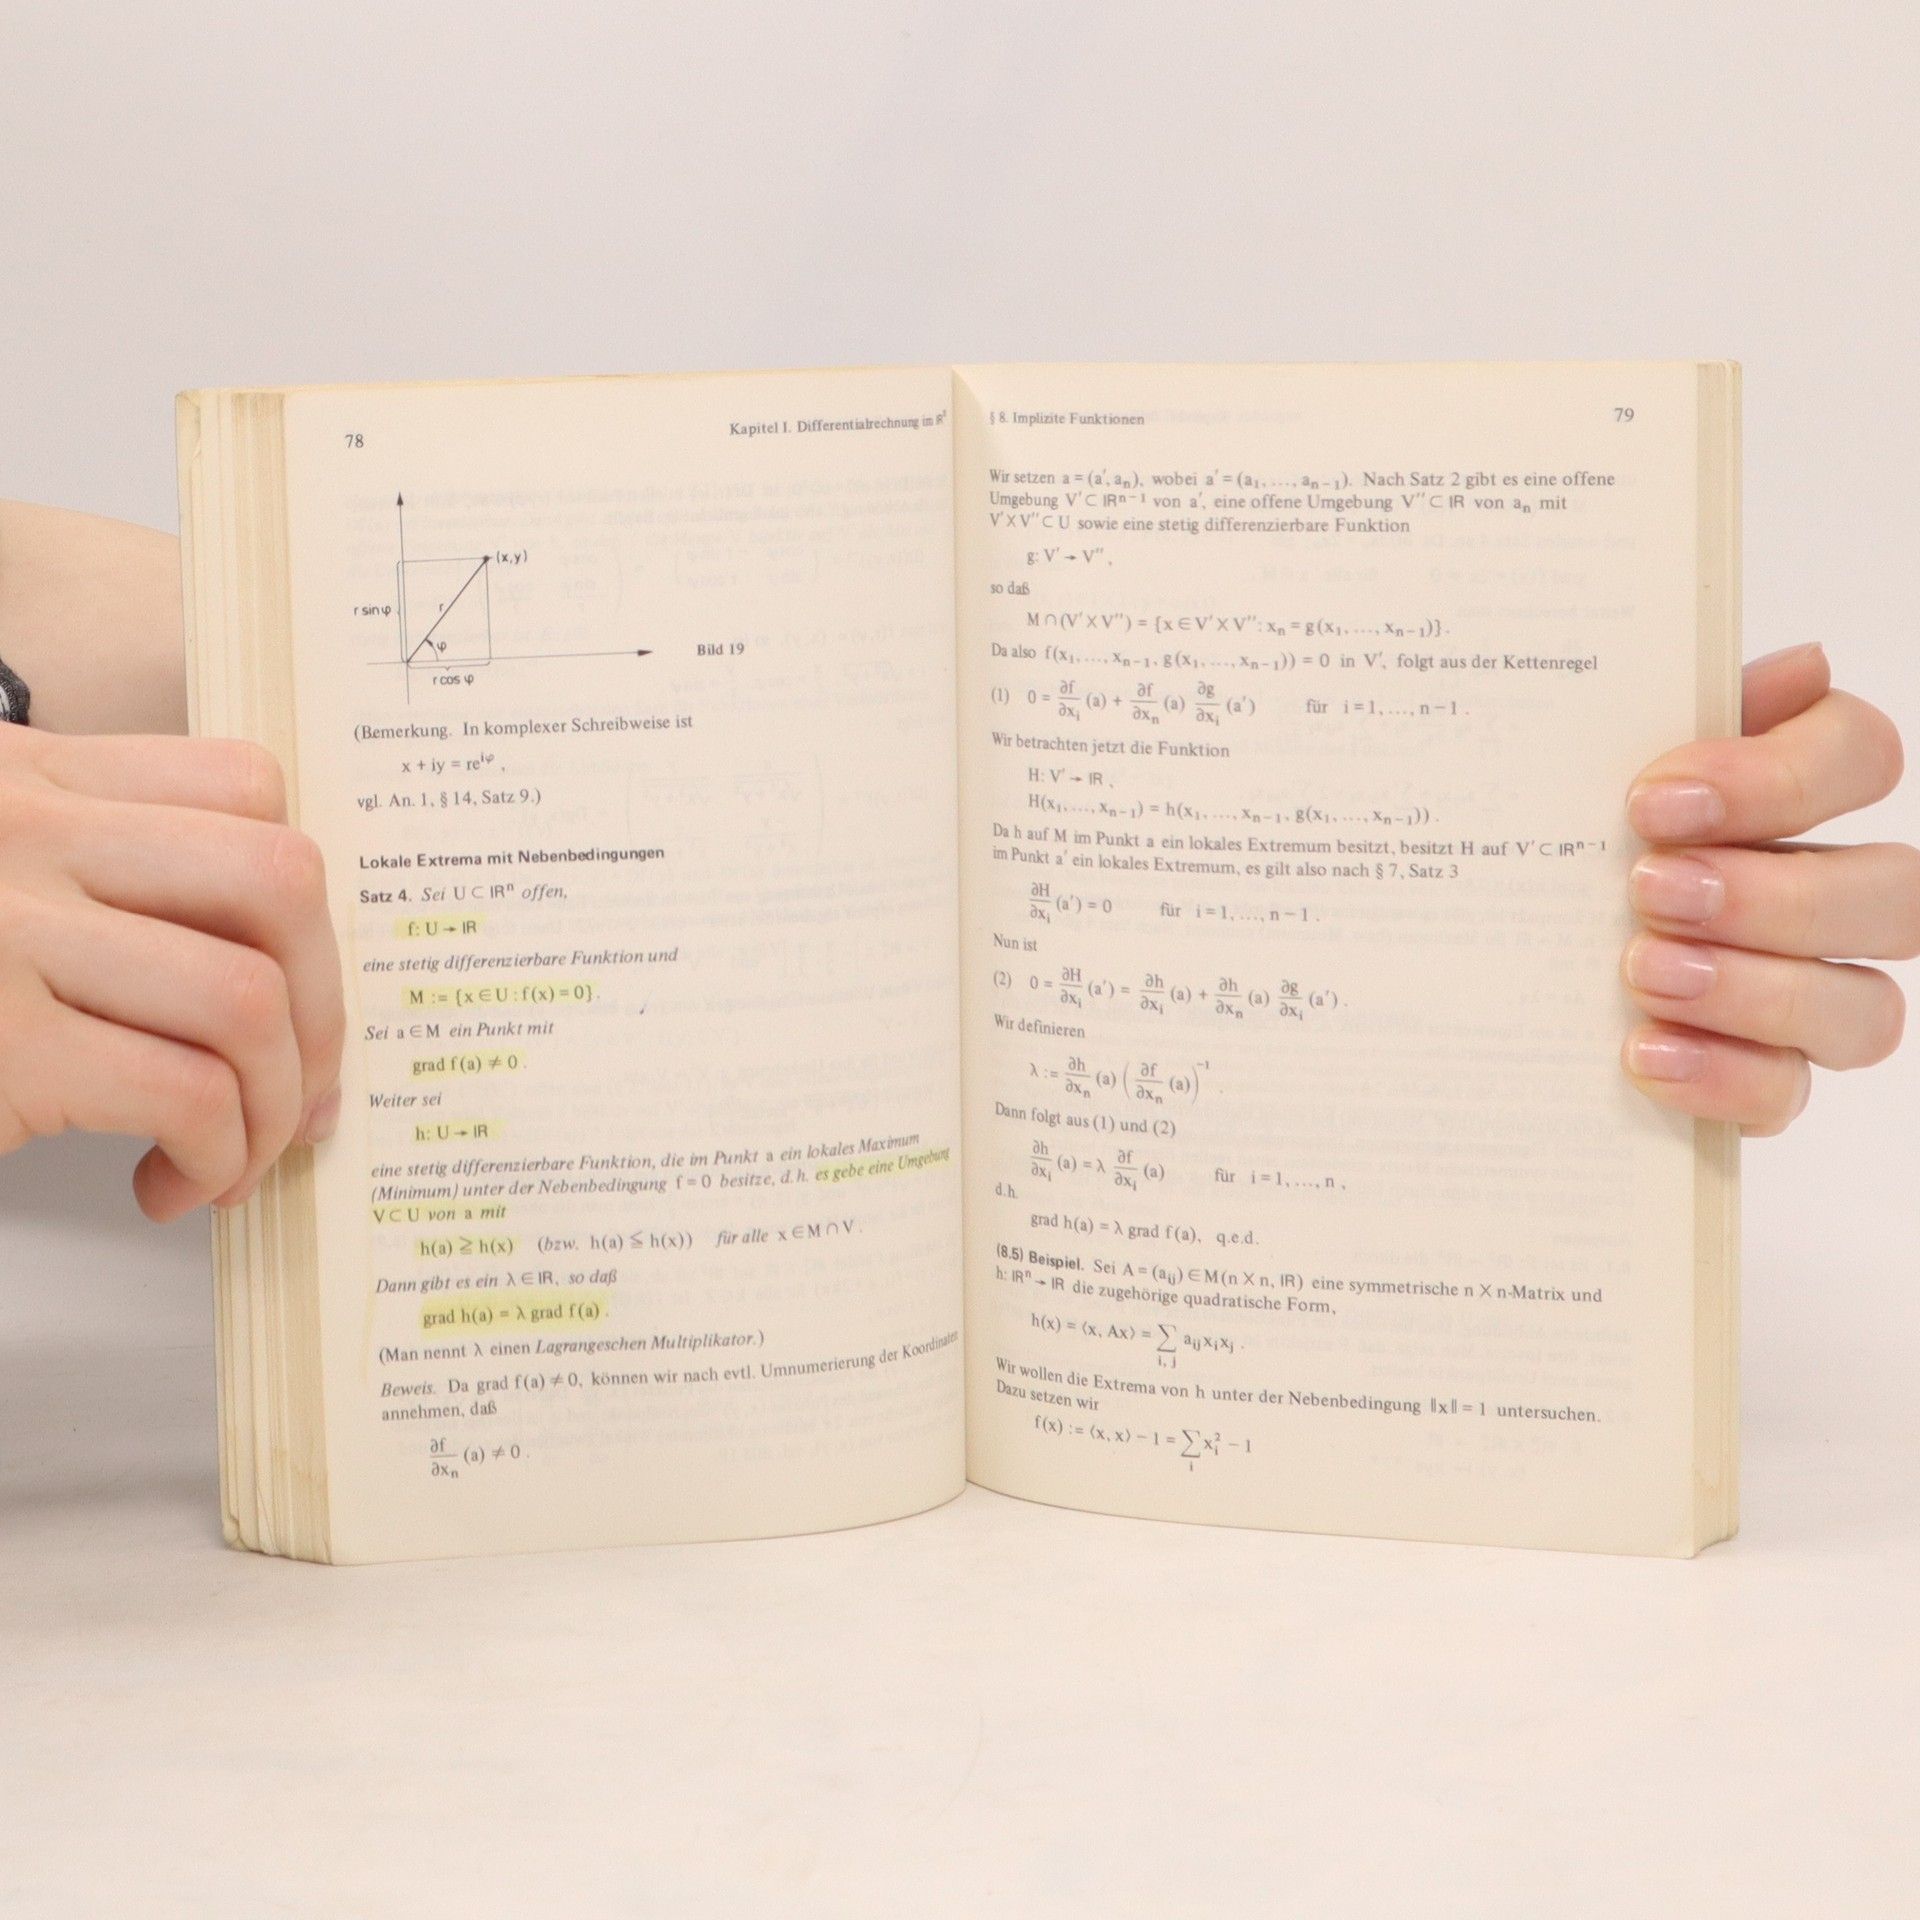 78
Kapitel I. Differentialrechnung im ℝ
(x,y)
r sin φ
r
φ
r cos φ
Bild 19
(Bemerkung. In komplexer Schreibweise ist
x + iy = re^{iφ} ,
vgl. An. 1, § 14, Satz 9.)
Lokale Extrema mit Nebenbedingungen
Satz 4. Sei U ⊂ ℝⁿ offen,
f: U → ℝ
eine stetig differenzierbare Funktion und
M := {x ∈ U : f(x) = 0}.
Sei a ∈ M ein Punkt mit
grad f(a) ≠ 0 .
Weiter sei
h: U → ℝ
eine stetig differenzierbare Funktion, die im Punkt a ein lokales Maximum
(Minimum) unter der Nebenbedingung f = 0 besitze, d.h. es gebe eine Umgebung
V ⊂ U von a mit
h(a) ≧ h(x) (bzw. h(a) ≦ h(x)) für alle x ∈ M ∩ V .
Dann gibt es ein λ ∈ ℝ, so daß
grad h(a) = λ grad f(a) .
(Man nennt λ einen Lagrangeschen Multiplikator.)
Beweis. Da grad f(a) ≠ 0, können wir nach evtl. Umnumerierung der Koordinaten
annehmen, daß
∂f/∂xₙ (a) ≠ 0 .
§ 8. Implizite Funktionen
79
Wir setzen a = (a′, aₙ), wobei a′ = (a₁, ..., aₙ₋₁). Nach Satz 2 gibt es eine offene
Umgebung V′ ⊂ ℝⁿ⁻¹ von a′, eine offene Umgebung V″ ⊂ ℝ von aₙ mit
V′ × V″ ⊂ U sowie eine stetig differenzierbare Funktion
g: V′ → V″ ,
so daß
M ∩ (V′ × V″) = {x ∈ V′ × V″: xₙ = g(x₁, ..., xₙ₋₁)}.
Da also f(x₁, ..., xₙ₋₁, g(x₁, ..., xₙ₋₁)) = 0 in V′, folgt aus der Kettenregel
(1) 0 = ∂f/∂xᵢ (a) + ∂f/∂xₙ (a) ∂g/∂xᵢ (a′) für i = 1, ..., n − 1 .
Wir betrachten jetzt die Funktion
H: V′ → ℝ ,
H(x₁, ..., xₙ₋₁) = h(x₁, ..., xₙ₋₁, g(x₁, ..., xₙ₋₁)) .
Da h auf M im Punkt a ein lokales Extremum besitzt, besitzt H auf V′ ⊂ ℝⁿ⁻¹
im Punkt a′ ein lokales Extremum, es gilt also nach § 7, Satz 3
∂H/∂xᵢ (a′) = 0 für i = 1, ..., n − 1 .
Nun ist
(2) 0 = ∂H/∂xᵢ (a′) = ∂h/∂xᵢ (a) + ∂h/∂xₙ (a) ∂g/∂xᵢ (a′) .
Wir definieren
λ := ∂h/∂xₙ (a) (∂f/∂xₙ (a))⁻¹ .
Dann folgt aus (1) und (2)
∂h/∂xᵢ (a) = λ ∂f/∂xᵢ (a) für i = 1, ..., n ,
d.h.
grad h(a) = λ grad f(a), q.e.d.
(8.5) Beispiel. Sei A = (aᵢⱼ) ∈ M(n × n, ℝ) eine symmetrische n × n-Matrix und
h: ℝⁿ → ℝ die zugehörige quadratische Form,
h(x) = ⟨x, Ax⟩ = ∑_{i, j} aᵢⱼxᵢxⱼ .
Wir wollen die Extrema von h unter der Nebenbedingung ‖x‖ = 1 untersuchen.
Dazu setzen wir
f(x) := ⟨x, x⟩ − 1 = ∑_{i} xᵢ² − 1